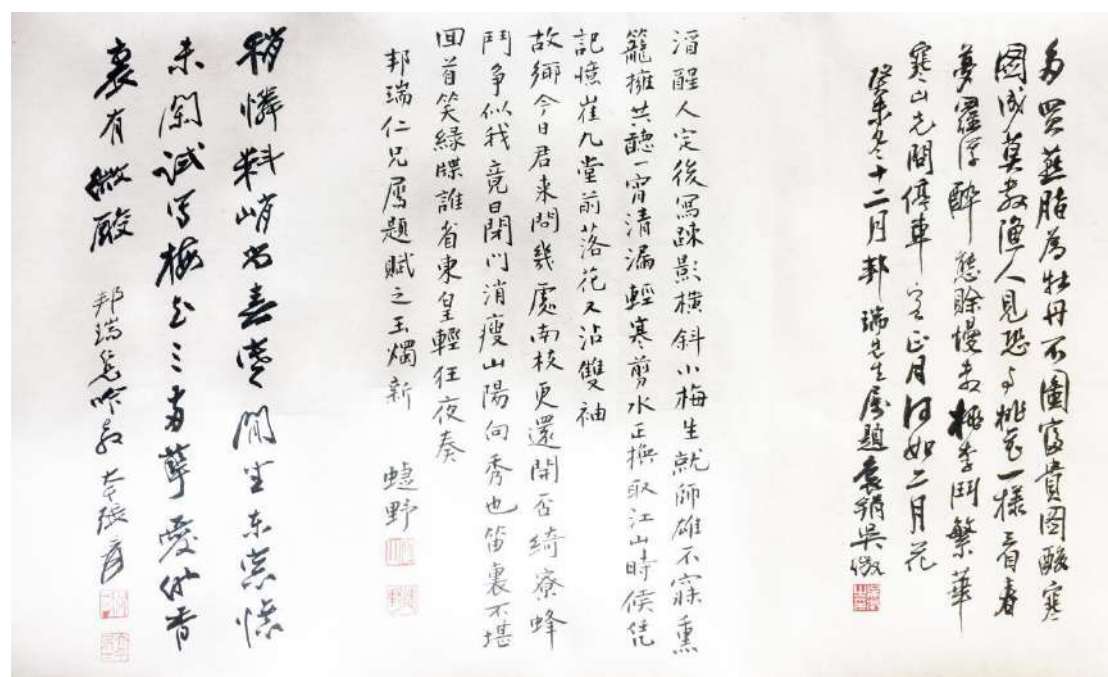 多買燕脂為牡丹不圖富貴圖酸寒
圖成莫教漁人見恐與桃花一樣看春
夢羅浮醉態賒慢教桃李鬥繁華
寒山元關停車坐正月何如二月花
癸未冬十二月邦瑞先生属題袁絹吳徵
酒醒人定後寫疎影橫斜小梅生就師雄不寐熏
籠擁共聽一宵清漏輕寒剪水正換取江山時候凭
記憶崔九堂前落花又沾雙袖
故鄉今日君來問幾處南枝更還開否綺寮蜂
鬥爭似我竟日閉門消瘦山陽向秀也笛裏不堪
回首笑綠牒誰省東皇輕狂夜奏
邦瑞仁兄属題賦之玉燭新 野
稍憐料峭為春寒閒坐東窓憶
未闌試寫梅花三兩萼愛他香
裏有微酸 邦瑞先吟教 大千張爰